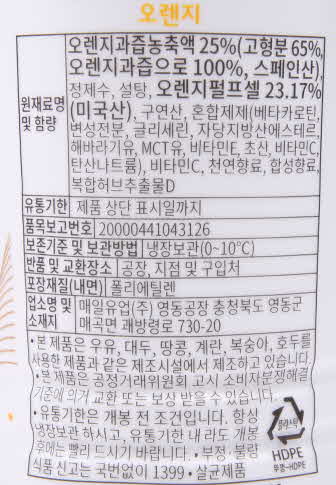 오렌지
원재료명 및 함량
오렌지과즙농축액 25%(고형분 65%,
오렌지과즙으로 100%, 스페인산),
정제수, 설탕, 오렌지펄프셀 23.17%
(미국산), 구연산, 혼합제제(베타카로틴,
변성전분, 글리세린, 자당지방산에스테르,
해바라기유, MCT유, 비타민E, 초산, 비타민C,
탄산나트륨), 비타민C, 천연향료, 합성향료,
복합허브추출물D
유통기한 제품 상단 표시일까지
품목보고번호 20000441043126
보존기준 및 보관방법 냉장보관(0~10℃)
반품 및 교환장소 공장, 지점 및 구입처
포장재질(내면) 폴리에틸렌
업소명 및 소재지
매일유업(주) 영동공장 충청북도 영동군
매곡면 괘방령로 730-20
• 본 제품은 우유, 대두, 땅콩, 계란, 복숭아, 호두를
사용한 제품과 같은 제조시설에서 제조하고 있습니다.
• 본 제품은 공정거래위원회 고시 소비자분쟁해결
기준에 의거 교환 또는 보상 받을 수 있습니다.
• 유통기한은 개봉 전 조건입니다. 항상
냉장보관 하시고, 유통기한 내라도 개봉
후에는 빨리 드시기 바랍니다. • 부정·불량
식품 신고는 국번없이 1399 • 살균제품
플라스틱
HDPE
뚜껑-HDPE